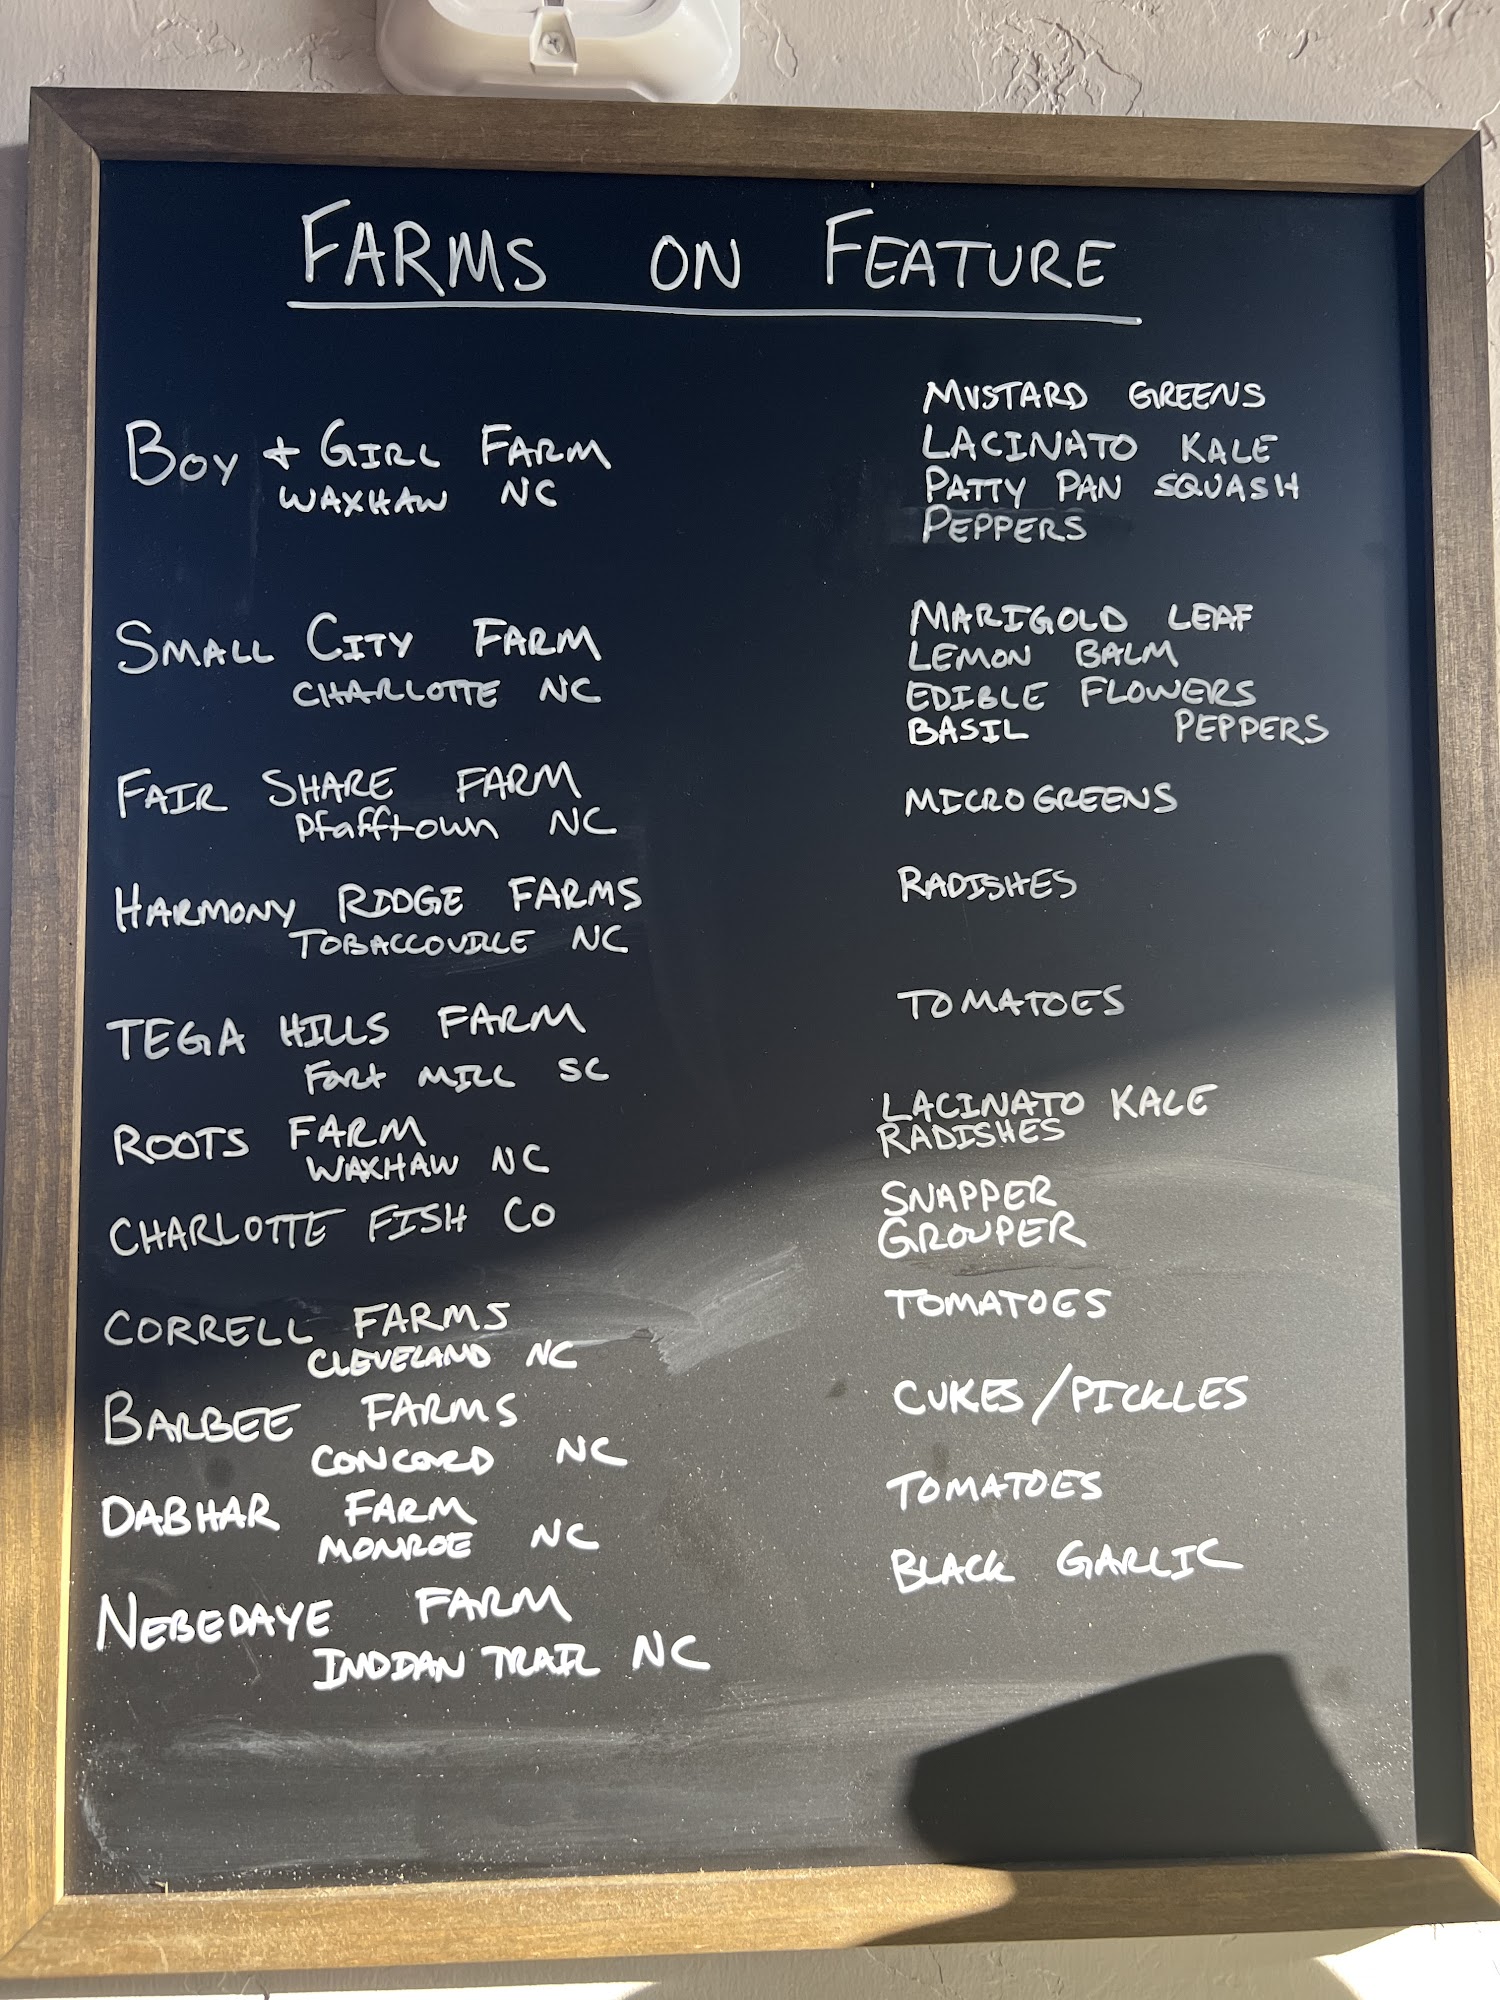 FARMS ON FEATURE
BOY + GIRL FARM
WAXHAW NC
MUSTARD GREENS
LACINATO KALE
PATTY PAN SQUASH
PEPPERS
SMALL CITY FARM
CHARLOTTE NC
MARIGOLD LEAF
LEMON BALM
EDIBLE FLOWERS
BASIL PEPPERS
FAIR SHARE FARM
Pfafftown NC
MICROGREENS
HARMONY RIDGE FARMS
TOBACCOVILLE NC
RADISHES
TEGA HILLS FARM
Fort MILL SC
TOMATOES
ROOTS FARM
WAXHAW NC
LACINATO KALE
RADISHES
CHARLOTTE FISH CO
SNAPPER
GROUPER
CORRELL FARMS
CLEVELAND NC
TOMATOES
BARBEE FARMS
CONCORD NC
CUKES/PICKLES
DABHAR FARM
MONROE NC
TOMATOES
NEBEDAYE FARM
INDIAN TRAIL NC
BLACK GARLIC